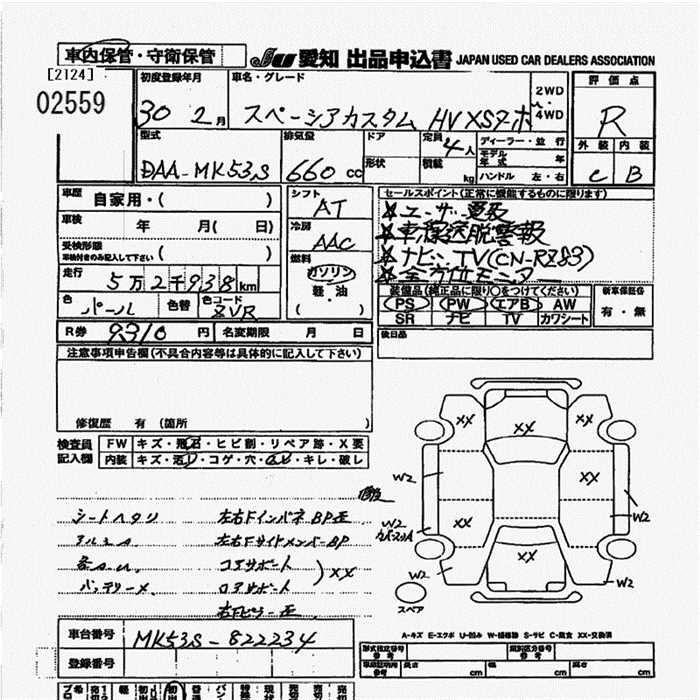 車内保管・守衛保管 JU 愛知 出品申込書 JAPAN USED CAR DEALERS ASSOCIATION
[2124]
02559
初度登録年月 車名・グレード 2WD 4WD 評価点
30 2月 スペーシアカスタム HV XSターボ R
型式 排気量 ドア 定員 ディーラー・並行 外装 内装
DAA-MK53S 660 cc 形状 4人 積載 kg モデル年式 年 ハンドル 左・右 C B
車歴 自家用・( )
シフト AT
セールスポイント(正常に機能するものに限ります)
車検 年 月( 日)
冷房 AAC
受検形態 車検付きのみ記入して下さい ( )
車線逸脱警報
ナビ、TV(CN-RZ83)
全方位モニター
走行 5万2千938km
燃料 ガソリン 軽・油 ( )
装備品(純正品に限り○をつけてください) 新車保証書
PS PW エアB AW 有・無
SR ナビ TV カワシート
色 パール 色替 色コード ZVR
R券 9310円 名変期限 月 日
後日品
注意事項申告欄(不具合内容等は具体的に記入して下さい)
修復歴 有(箇所 )
検査員記入欄 FW キズ・飛石・ヒビ割・リペア跡・X要
内装 キズ・汚レ・コゲ・穴・スレ・キレ・破レ
XX XX XX XX XX XX
W2 W2 W2 W2 W2
シートヘタリ 左右Fインパネ BP正
アルミA 左右FサイドメンバーBP
コアサポート
バッテリーメ ロアサポート )XX
右Fピラー正
スペア
A-キズ E-エクボ U-凹み W-補修跡 S-サビ C-腐食 XX-交換済
車台番号 MK53S-822234
登録番号
型式指定番号 参考 類別区分番号 参考
車庫証明用 参考 長さ cm 幅 cm 高さ cm